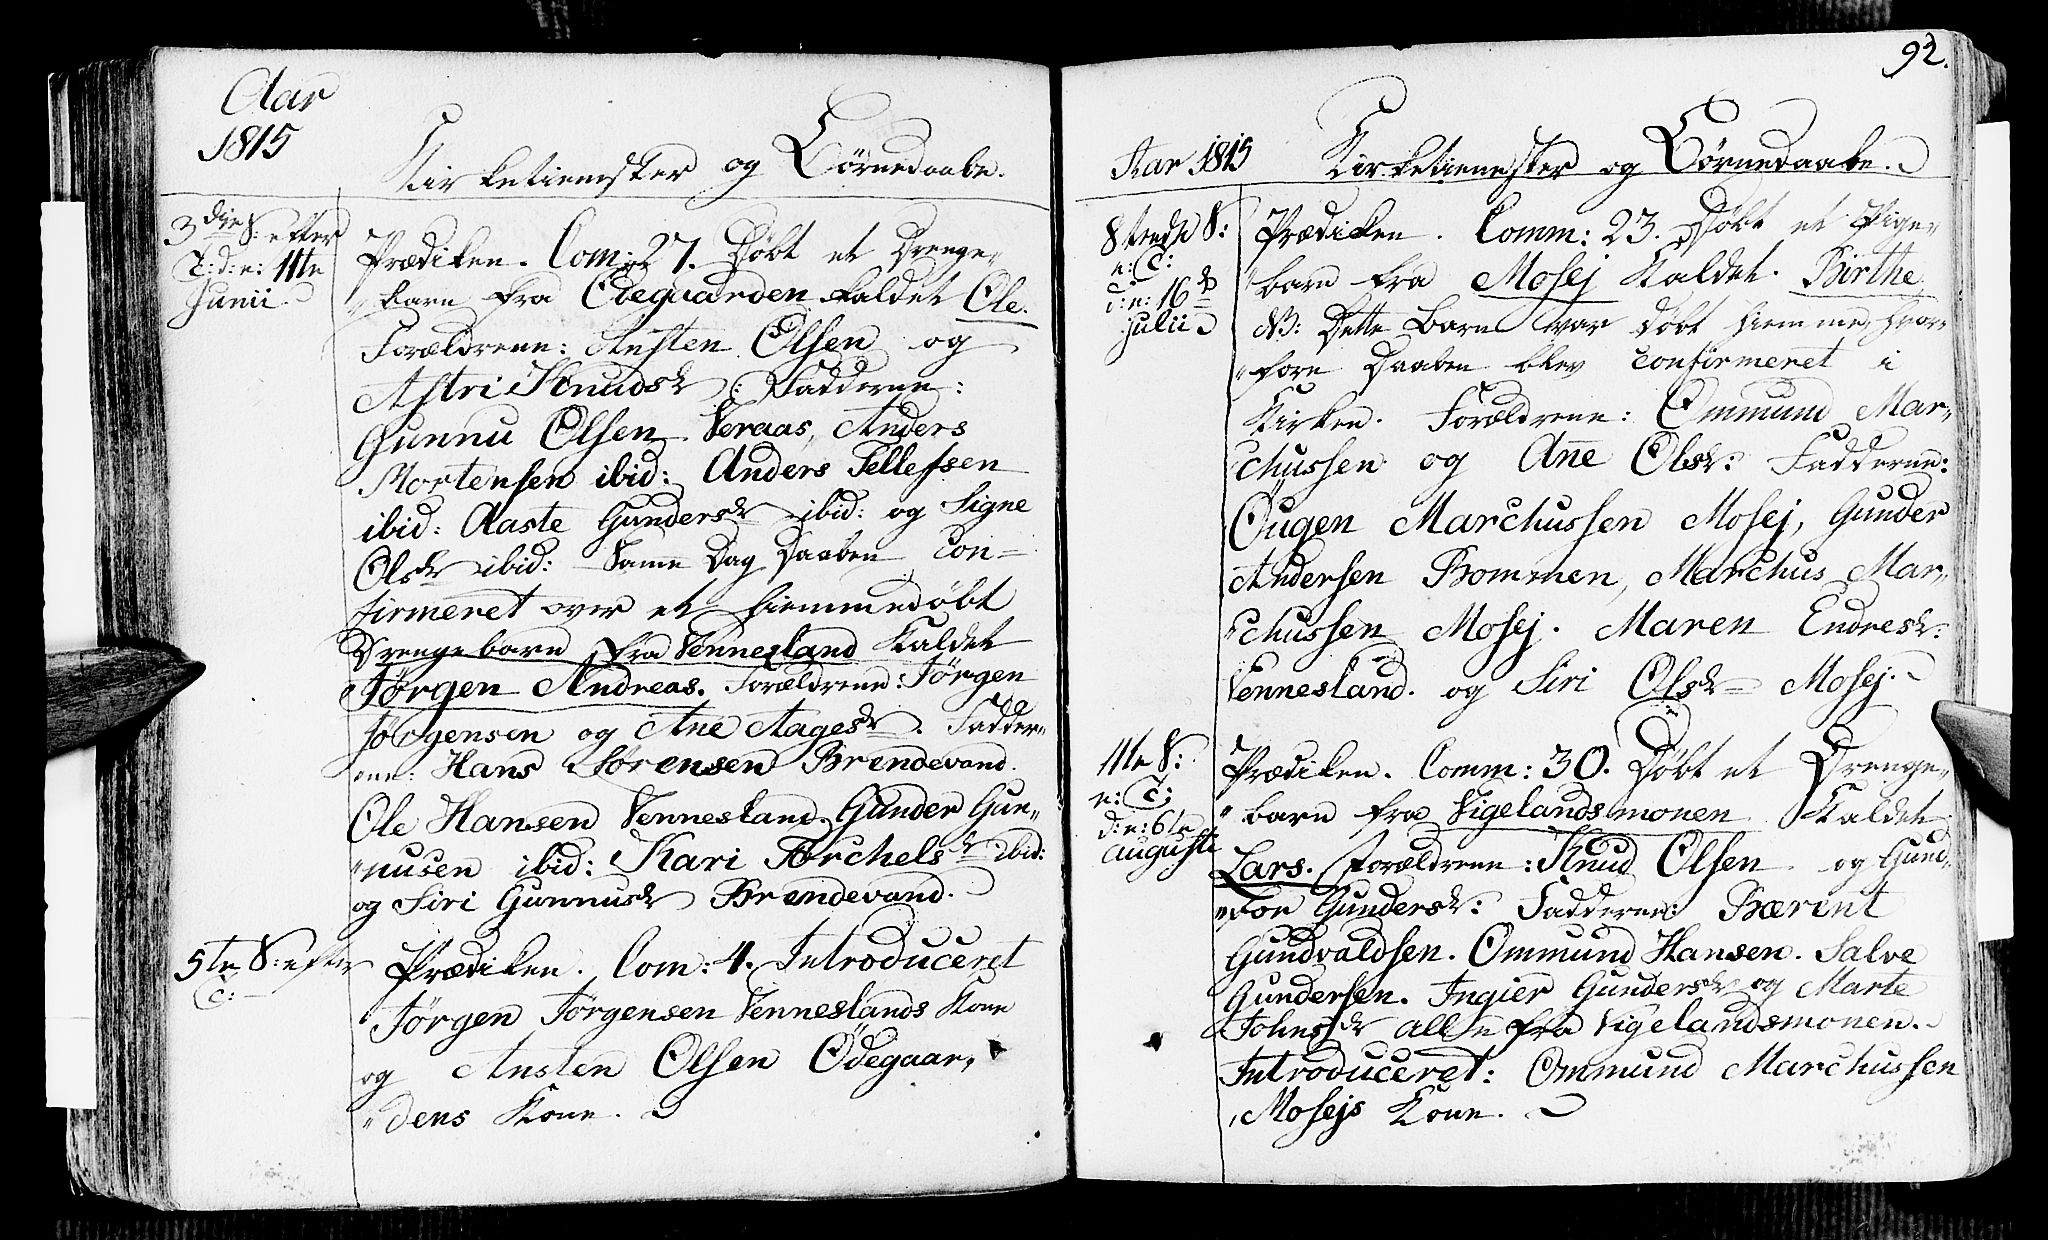 Aar
1815
Kirketienester og Börnedaabe.
3die S: efter
T: d: e: 11te
Junii.
Prædiken. Com: 27. Döbt et Drenge„
„barn fra Ödeguarden kaldet Ole.
Forældrene: Austen Olsen og
Astri Knudsdr: Fadderne:
Gunnu Olsen Veraas, Anders
Mortensen ibid: Anders Tellefsen
ibid: Aaste Gundersdr ibid: og Signe
Olsdr ibid: Samme Dag Daaben con-
firmeret over et hiemmedöbt
Drengebarn fra Vennesland Kaldet
Jörgen Andreas. Forældrene: Jörgen
Jörgensen og Ane Aagesdr. Fadder„
„ne: Hans Sörensen Brendevand.
Ole Hansen Vennesland, Gunder Gun„
„nusen ibid: Kari Torchelsdr ibid:
og Siri Gunnusdr Brendevand.
5te S: efter
T:
Prædiken. Com: 4. Introduceret
Jörgen Jörgensen Venneslands Kone
og Austen Olsen Ödegaar„
„dens Kone.
92.
Aar 1815 Kirketienester og Börnedaabe.
8tende S:
e: T:
d: e: 16d
Julii
Prædiken. Comm: 23. Döbt et Pige„
„barn fra Mosej Kaldet Birthe
NB: Dette Barn var döbt hiemme, hvor„
„fore Daaben blev confirmeret i
Kirken. Forældrene: Ommund Mar„
„chussen og Ane Olsdr: Fadderne:
Öugen Marchussen Mosej, Gunder
Andersen Bommen, Marchus Mar„
„chussen Mosej. Maren Endresdr:
Vennesland. og Siri Olsdr Mosej.
11te S:
e: T:
d: e: 6te
Augusti
Prædiken. Comm: 30. Döbt et Drenge„
„barn fra Vigelandsmonen Kaldet
Lars. Forældrene: Knud Olsen og Gund„
„vor Gundersdr: Fadderne: Bærint
Gundvaldsen. Ommund Hansen. Salve
Gundersen. Ingier Gundersdr og Marte
Johnsdr alle fra Vigelandsmonen.
Introduceret: Ommund Marchussen
Mosejs Kone.